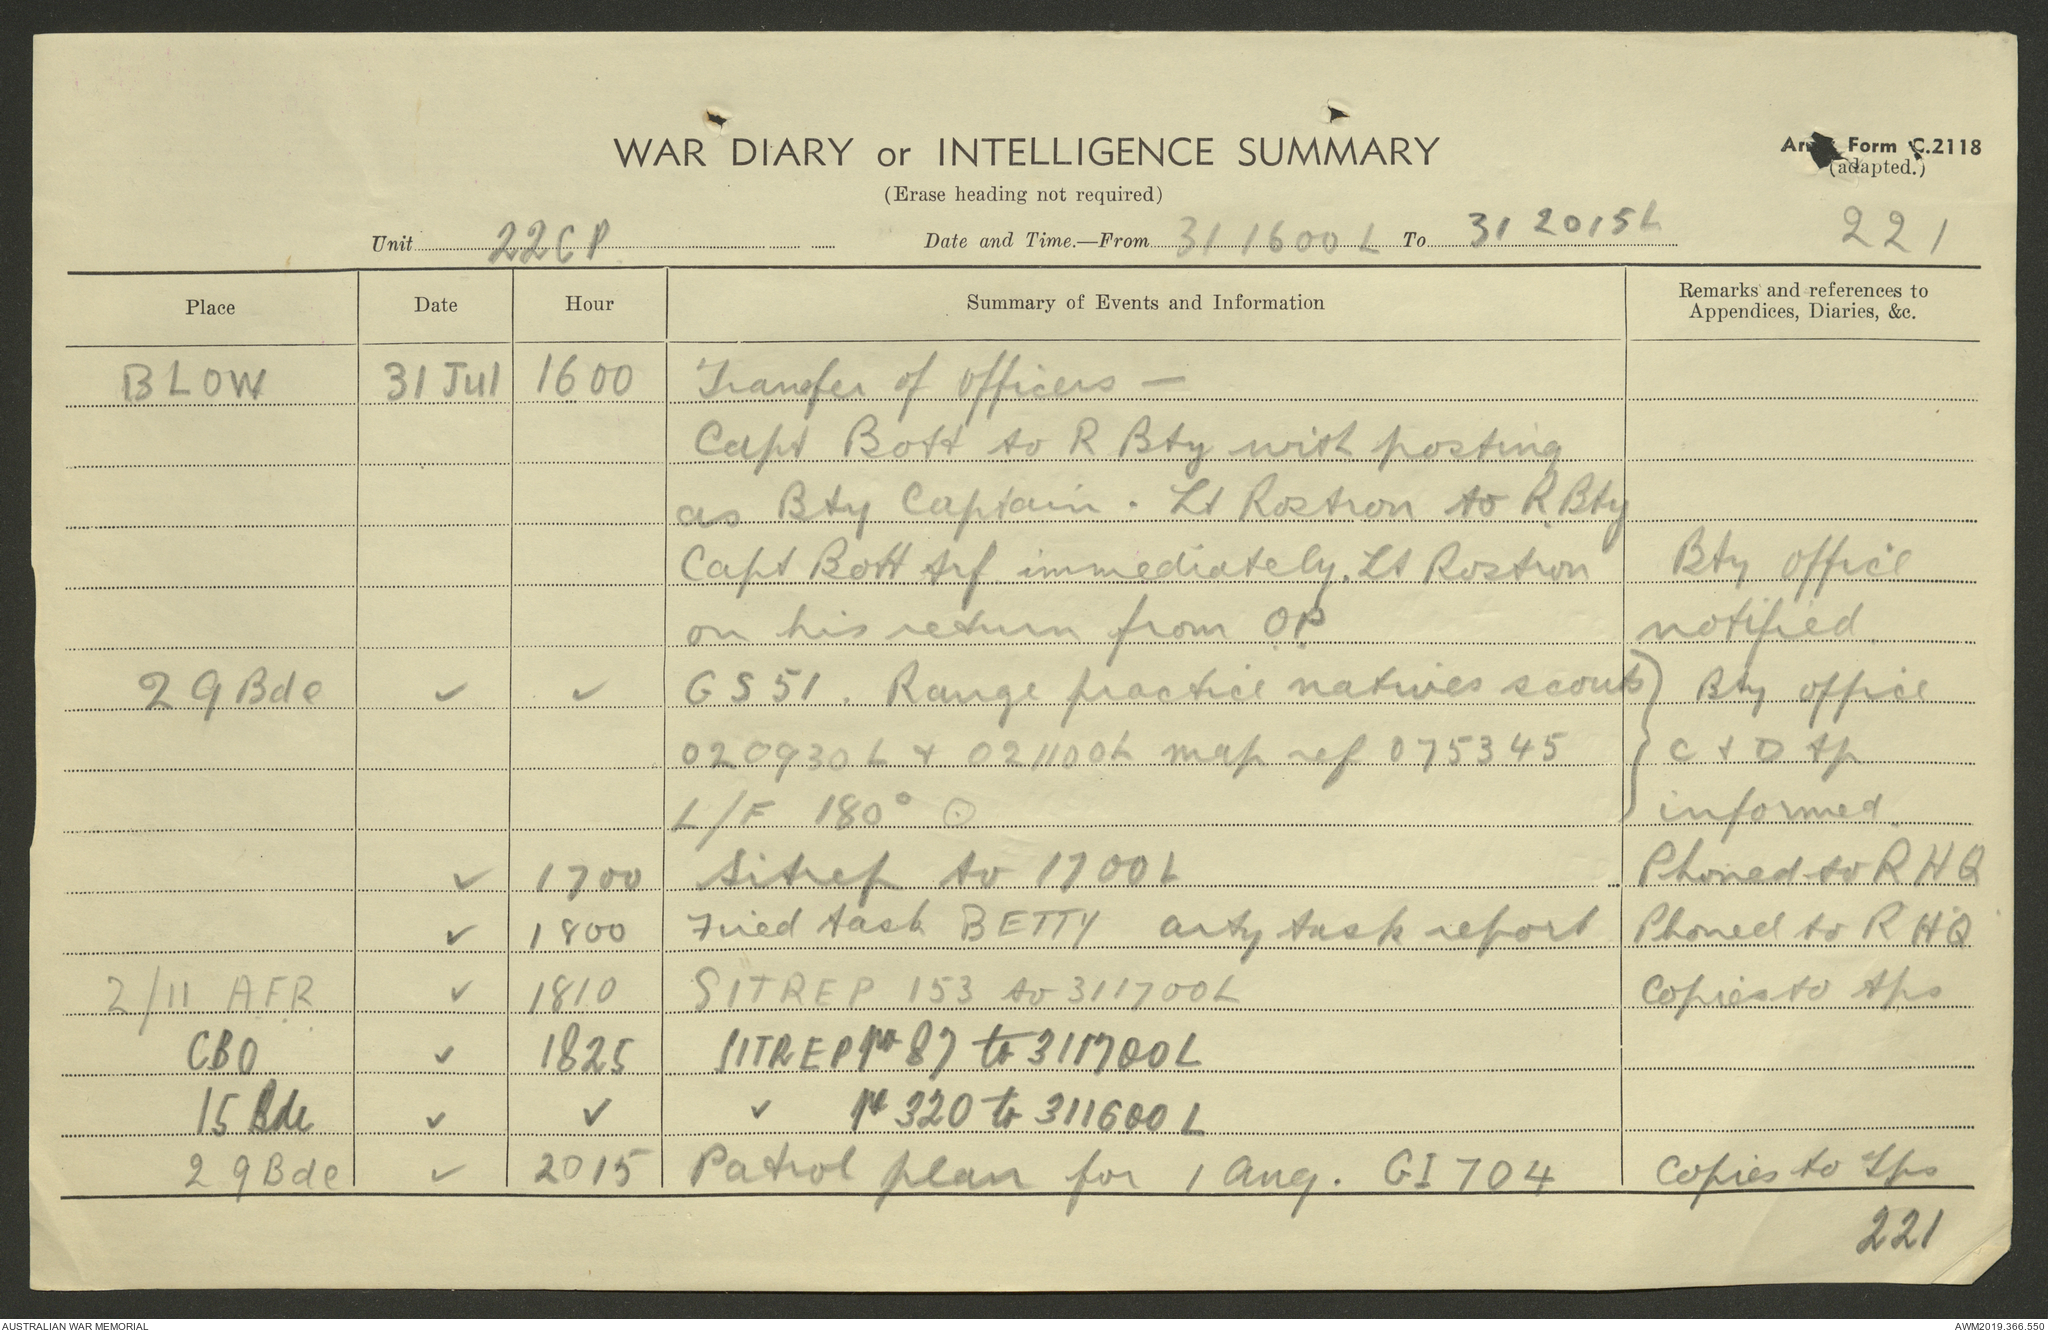 WAR DIARY or INTELLIGENCE SUMMARY
(Erase heading not required)
Form C.2118
(adapted.)
Unit 22CP Date and Time.—From 311600L To 312015L 221
Place Date Hour Summary of Events and Information Remarks and references to Appendices, Diaries, &c.
BLOW 31 Jul 1600 Transfer of officers —
Capt Bott to R Bty with posting
as Bty Captain. Lt Rostron to R Bty
Capt Bott trf immediately. Lt Rostron Bty office
on his return from O.P. notified.
29 Bde ✓ ✓ GS51. Range practice natives scouts } Bty office
020930L + 021100L map ref 075345 C + D tp
L/F 180° ⊙ informed.
✓ 1700 Sitrep to 1700L Phoned to RHQ
✓ 1800 Fired task BETTY arty task report Phoned to RHQ
2/11 A.F.R. ✓ 1810 SITREP 153 to 311700L Copies to tps
CBO ✓ 1825 SITREP no 87 to 311700L
15 Bde ✓ ✓ ✓ no 320 to 311600L
29 Bde ✓ 2015 Patrol plan for 1 Aug. GI 704 Copies to Tps
221
AUSTRALIAN WAR MEMORIAL
AWM2019.366.550